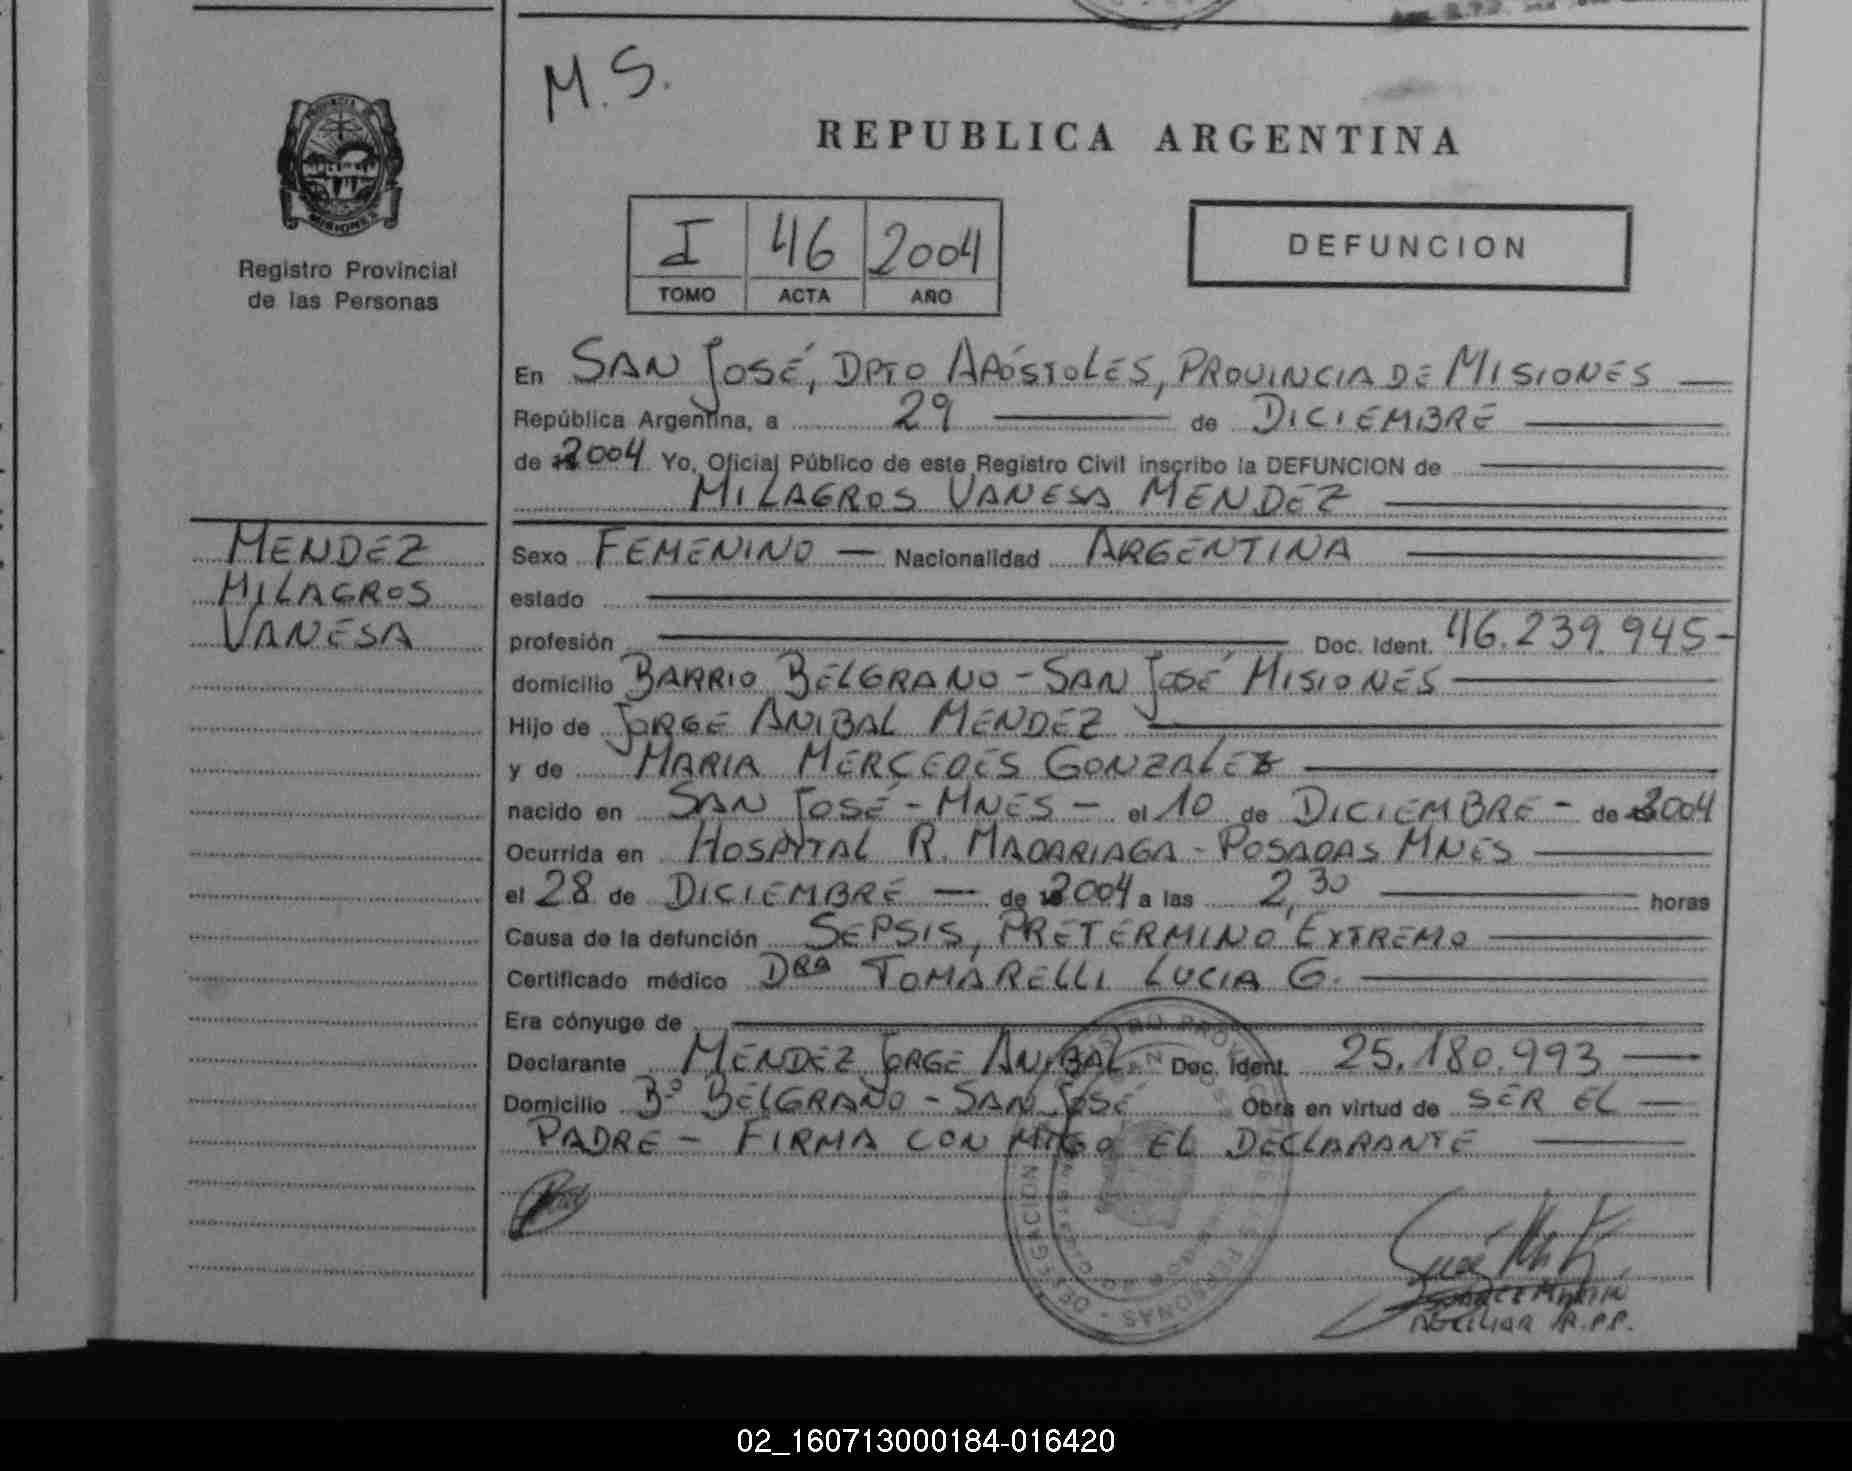 M.S.
REPUBLICA ARGENTINA
PROVINCIA DE
MISIONES
Registro Provincial
de las Personas
I 46 2004
TOMO ACTA AÑO
DEFUNCION
En SAN JOSÉ, DPTO APÓSTOLES, PROVINCIA DE MISIONES
República Argentina, a 29 de DICIEMBRE
de 2004 Yo, Oficial Público de este Registro Civil inscribo la DEFUNCION de
MILAGROS VANESA MENDEZ
MENDEZ
MILAGROS
VANESA
Sexo FEMENINO — Nacionalidad ARGENTINA
estado
profesión Doc. Ident. 46.239.945-
domicilio BARRIO BELGRANO - SAN JOSÉ MISIONES
Hijo de JORGE ANIBAL MENDEZ
y de MARIA MERCEDES GONZALEZ
nacido en SAN JOSÉ - MNES - el 10 de DICIEMBRE - de 2004
Ocurrida en HOSPITAL R. MADARIAGA - POSADAS MNES
el 28 de DICIEMBRE — de 2004 a las 2,30 horas
Causa de la defunción SEPSIS, PRETERMINO EXTREMO
Certificado médico DRA TOMARELLI LUCIA G.
Era cónyuge de
Declarante MENDEZ JORGE ANIBAL Doc. Ident. 25.180.993
Domicilio Bº BELGRANO - SAN JOSÉ Obra en virtud de SER EL
PADRE - FIRMA CON MIGO EL DECLARANTE
AUXILIAR R.P.P.
02_160713000184-016420